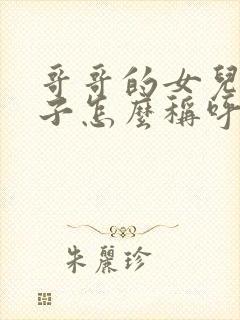 哥哥的女兒
子怎麼稱呼
朱麗珍